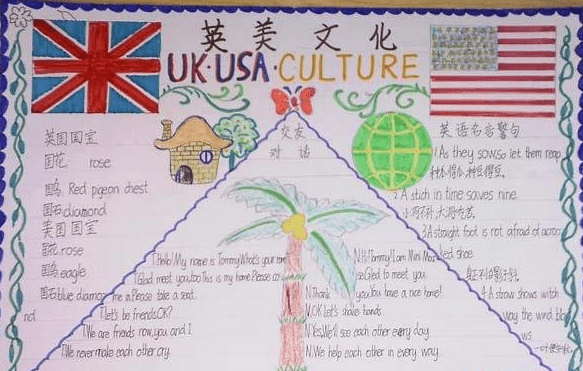 英美文化
UK·USA·CULTURE
交友
对话
英国国宝
国花 rose
国鸟 Red pigeon chest
国石 diamond
美国国宝
国花 rose
国鸟 eagle
国石 blue diamond
T:hello! My name is Tommy. What's your name
T:Glad meet you, too. This is my home. Please
me in. Please take a seat.
T:let's be friends, OK?
T:We are friends now, you and I
T:We never make each other cry.
N:Hi! Tommy. I am Mini
Glad to meet you.
N:Thank you. You have a nice home!
N:OK. Let's shake hands.
N:Yes. We'll see each other every day.
N:We help each other in every way.
英语名言警句
1 As they sow, so let them reap
2 A stich in time saves nine.
3 A straight foot is not afraid of a crooked shoe
4 A straw shows witch
way the wind blo
ws